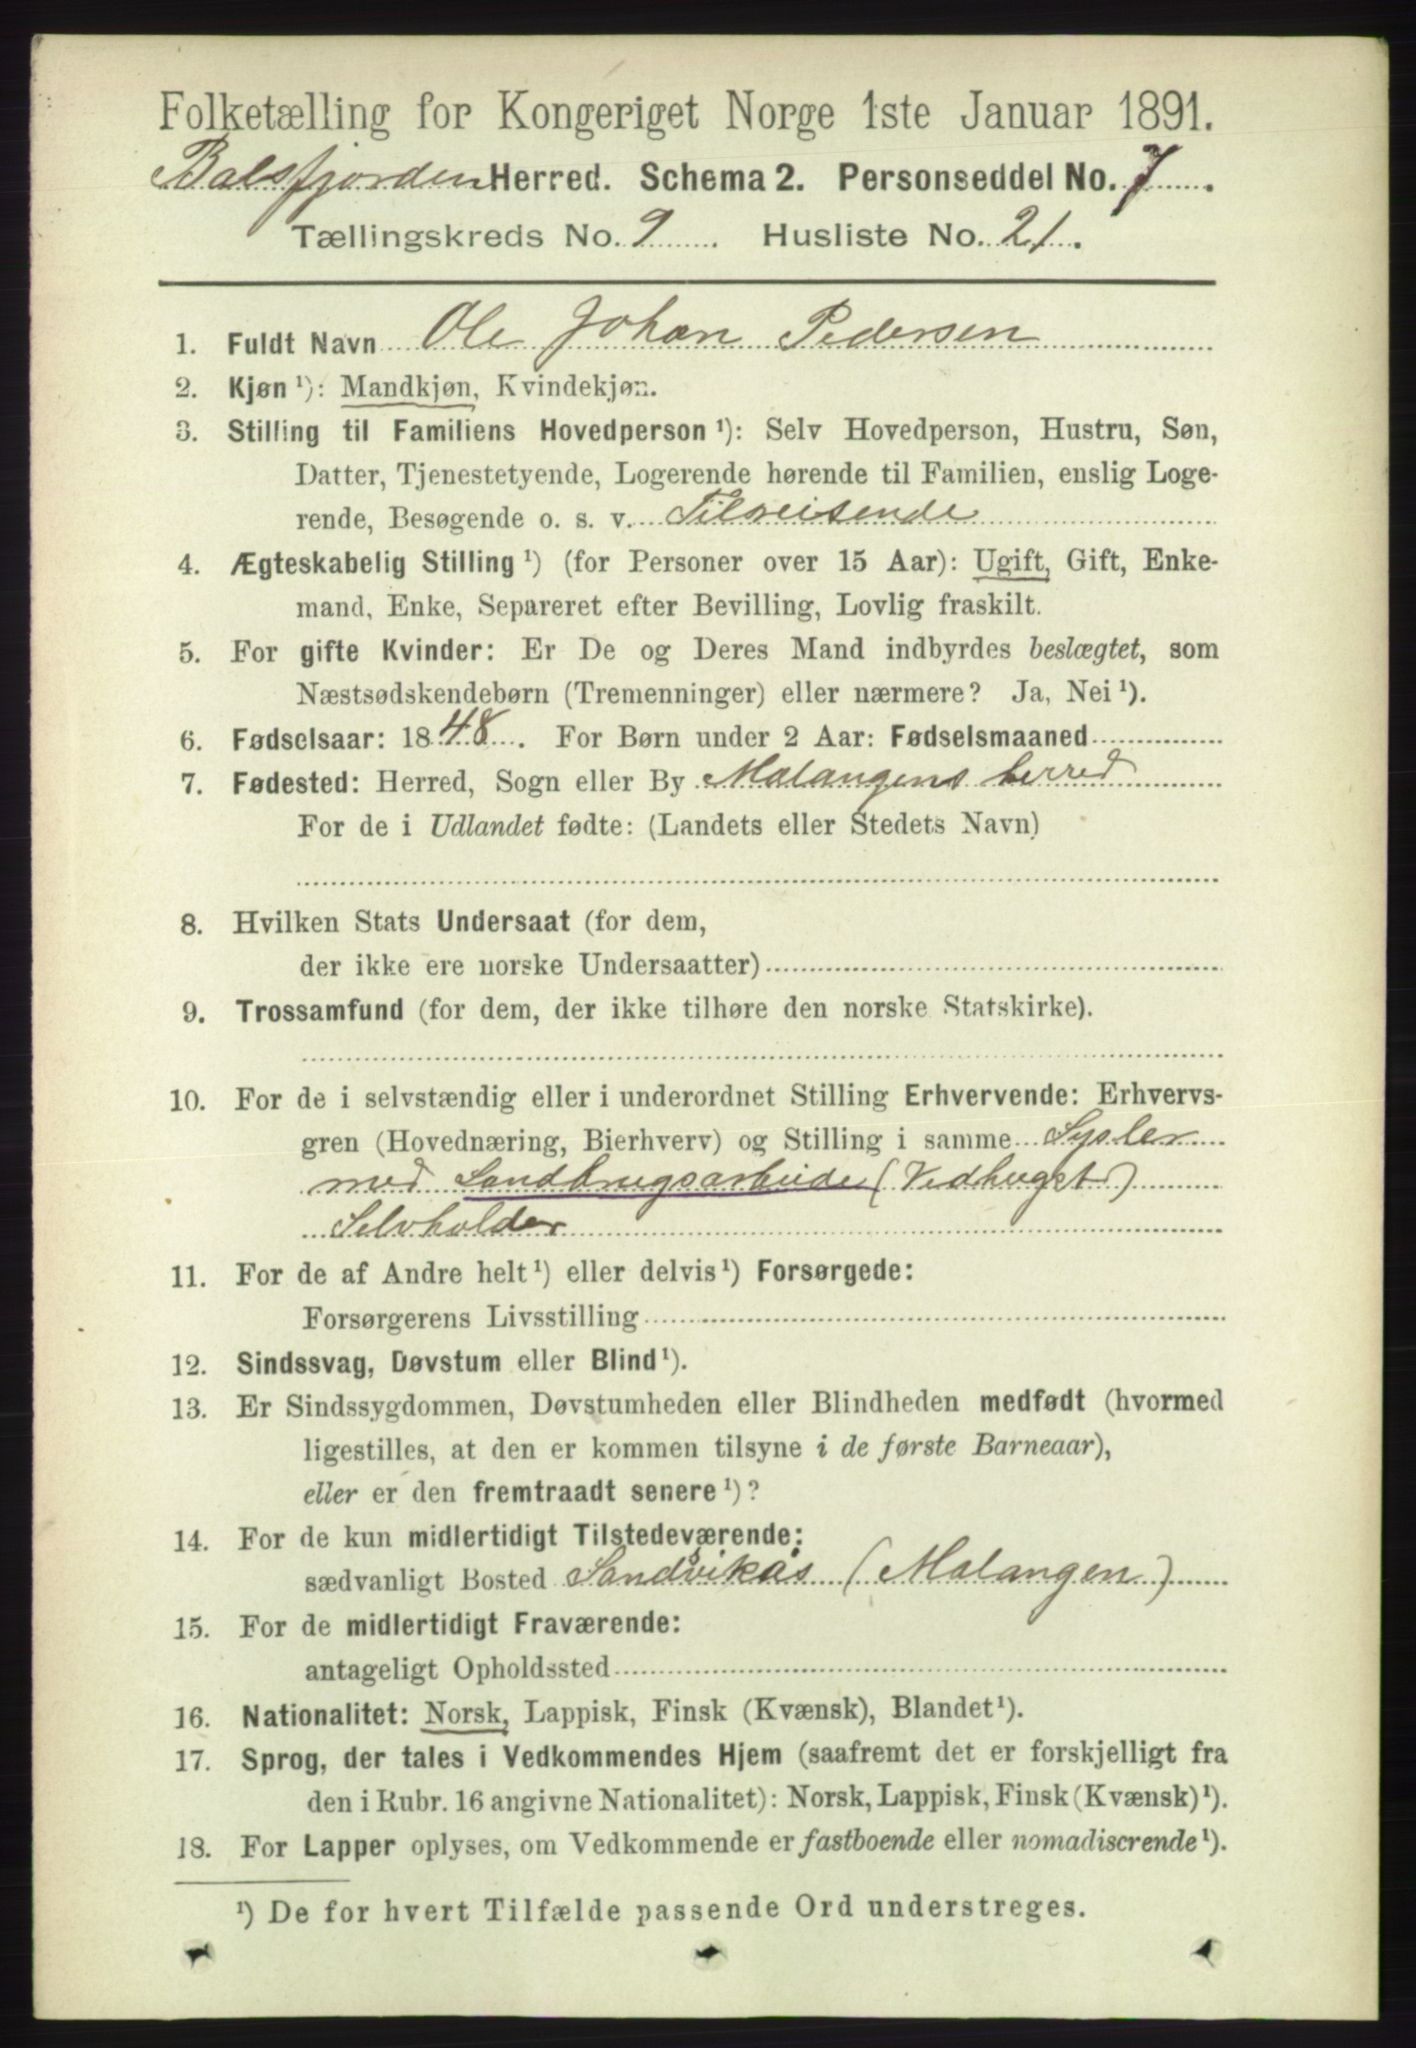 Folketælling for Kongeriget Norge 1ste Januar 1891.
Balsfjorden Herred. Schema 2. Personseddel No. 7.
Tællingskreds No. 9. Husliste No. 21.
1. Fuldt Navn Ole Johan Pedersen
2. Kjøn ¹): Mandkjøn, Kvindekjøn.
3. Stilling til Familiens Hovedperson ¹): Selv Hovedperson, Hustru, Søn,
Datter, Tjenestetyende, Logerende hørende til Familien, enslig Loge-
rende, Besøgende o. s. v. Tilreisende
4. Ægteskabelig Stilling ¹) (for Personer over 15 Aar): Ugift, Gift, Enke-
mand, Enke, Separeret efter Bevilling, Lovlig fraskilt.
5. For gifte Kvinder: Er De og Deres Mand indbyrdes beslægtet, som
Næstsødskendebørn (Tremenninger) eller nærmere? Ja, Nei ¹).
6. Fødselsaar: 1848. For Børn under 2 Aar: Fødselsmaaned
7. Fødested: Herred, Sogn eller By Malangens herred
For de i Udlandet fødte: (Landets eller Stedets Navn)
8. Hvilken Stats Undersaat (for dem,
der ikke ere norske Undersaatter)
9. Trossamfund (for dem, der ikke tilhøre den norske Statskirke).
10. For de i selvstændig eller i underordnet Stilling Erhvervende: Erhvervs-
gren (Hovednæring, Bierhverv) og Stilling i samme Sysler
med Landbrugsarbeide (Vedhugst)
Selvholder
11. For de af Andre helt ¹) eller delvis ¹) Forsørgede:
Forsørgerens Livsstilling
12. Sindssvag, Døvstum eller Blind ¹).
13. Er Sindssygdommen, Døvstumheden eller Blindheden medfødt (hvormed
ligestilles, at den er kommen tilsyne i de første Barneaar),
eller er den fremtraadt senere ¹)?
14. For de kun midlertidigt Tilstedeværende:
sædvanligt Bosted Sandvikås (Malangen)
15. For de midlertidigt Fraværende:
antageligt Opholdssted
16. Nationalitet: Norsk, Lappisk, Finsk (Kvænsk), Blandet ¹).
17. Sprog, der tales i Vedkommendes Hjem (saafremt det er forskjelligt fra
den i Rubr. 16 angivne Nationalitet): Norsk, Lappisk, Finsk (Kvænsk) ¹).
18. For Lapper oplyses, om Vedkommende er fastboende eller nomadiserende ¹).
¹) De for hvert Tilfælde passende Ord understreges.